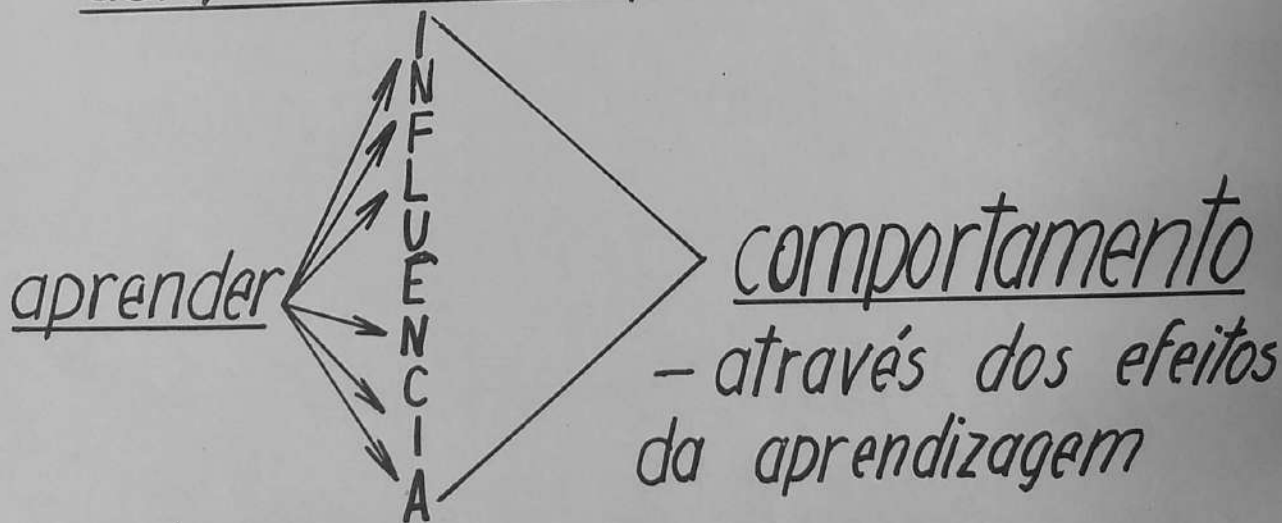 aprender
INFLUÊNCIA
comportamento
- através dos efeitos
da aprendizagem